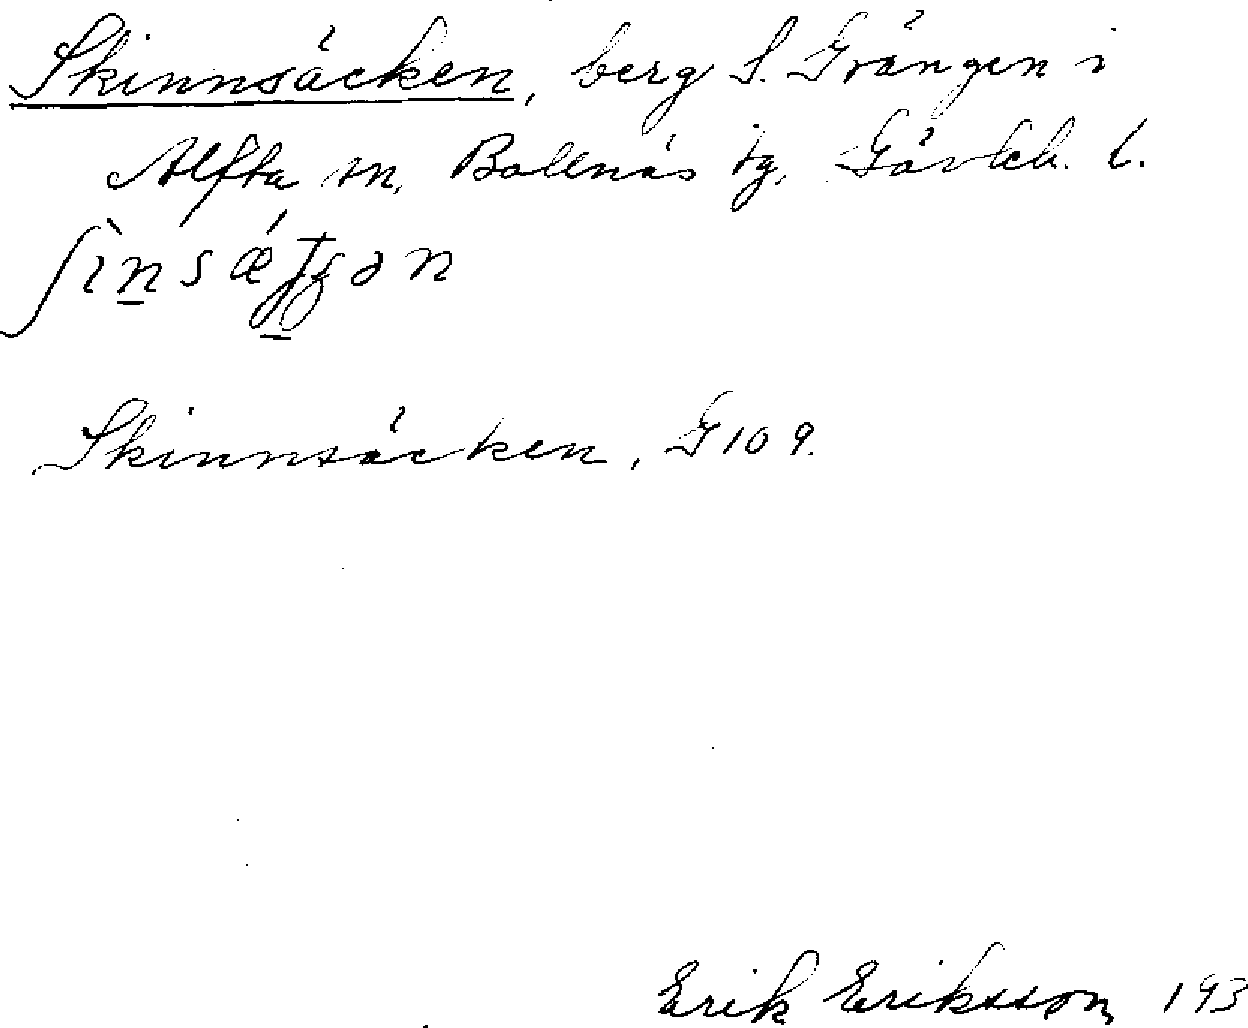 Skinnsäcken, berg S. Grängen i
Alfta sn, Bollnäs tg, Gävleb. l.
Skinnsäcken, G 109.
Erik Eriksson 193